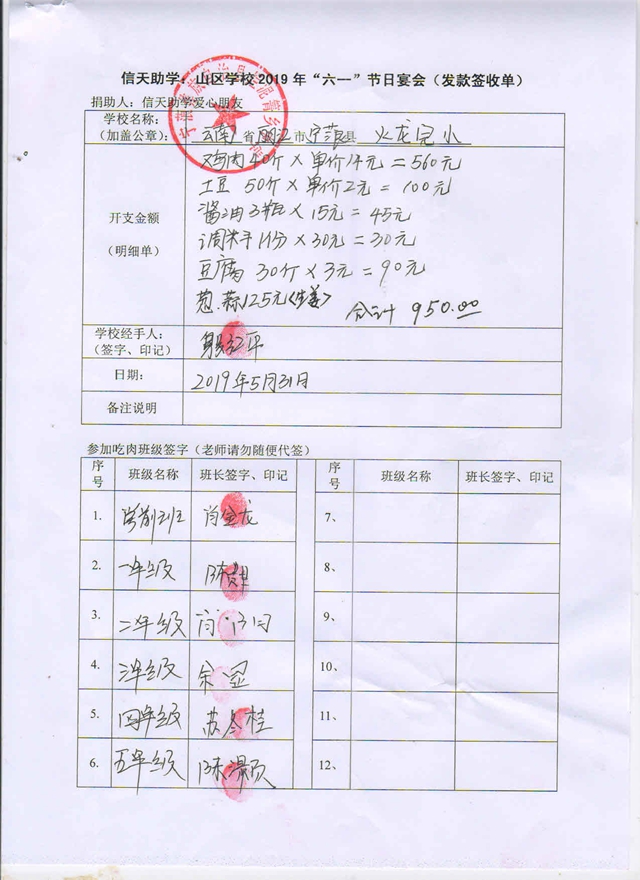 信天助学：山区学校2019年“六一”节日宴会（发款签收单）
捐助人：信天助学爱心朋友
学校名称：
（加盖公章）： 云南省丽江市宁蒗县 火龙完小
鸡肉40斤×单价14元=560元
土豆 50斤×单价2元=100元
酱油3瓶×15元=45元
开支金额
（明细单）
调料1份×30元=30元
豆腐30斤×3元=90元
葱.蒜125元<生姜> 合计 950.00
学校经手人：
（签字、印记）
日期： 2019年5月31日
备注说明
参加吃肉班级签字（老师请勿随便代签）
序号 班级名称 班长签字、印记 序号 班级名称 班长签字、印记
1. 学前班 肖金龙 7、
2. 一年级 8、
3、 二年级 9、
4、 三年级 10、
5、 四年级 苏冬桂 11、
6. 五年级 12、